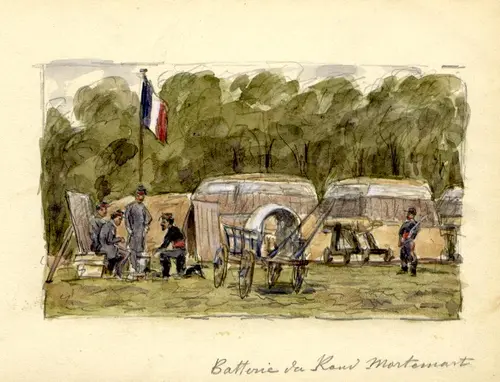 Batterie du Rond Mortemart